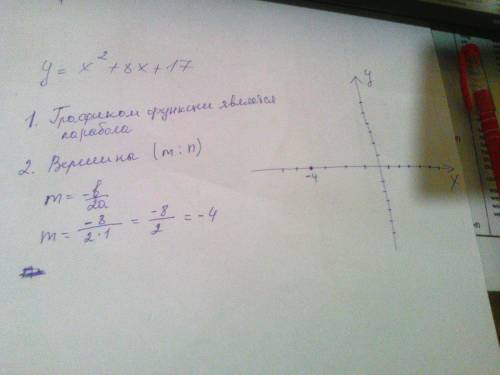 y = x² + 8x + 17
1. Графиком функции является
парабола
2. Вершины (m; n)
m = -b/2a
m = -8/2·1 = -8/2 = -4
y
-4
x